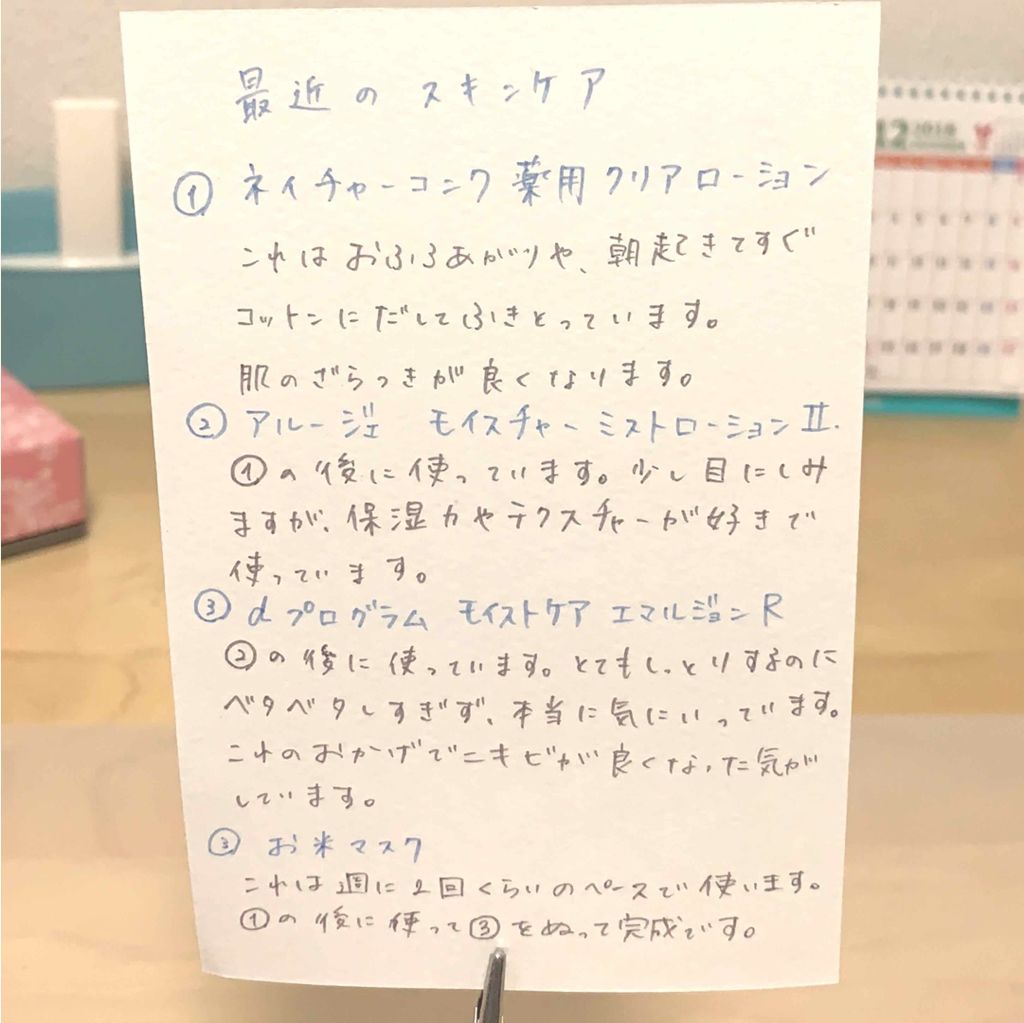 最近のスキンケア
① ネイチャーコンク 薬用クリアローション
これはおふろあがりや、朝起きてすぐ
コットンにだしてふきとっています。
肌のざらつきが良くなります。
② アルージェ モイスチャーミストローションⅡ.
①の後に使っています。少し目にしみ
ますが、保湿力やテクスチャーが好きで
使っています。
③ dプログラム モイストケア エマルジョンR
②の後に使っています。とてもしっとりするのに
ベタベタしすぎず、本当に気にいっています。
これのおかげでニキビが良くなった気が
しています。
③ お米マスク
これは週に2回くらいのペースで使います。
①の後に使って③をぬって完成です。
12 2018